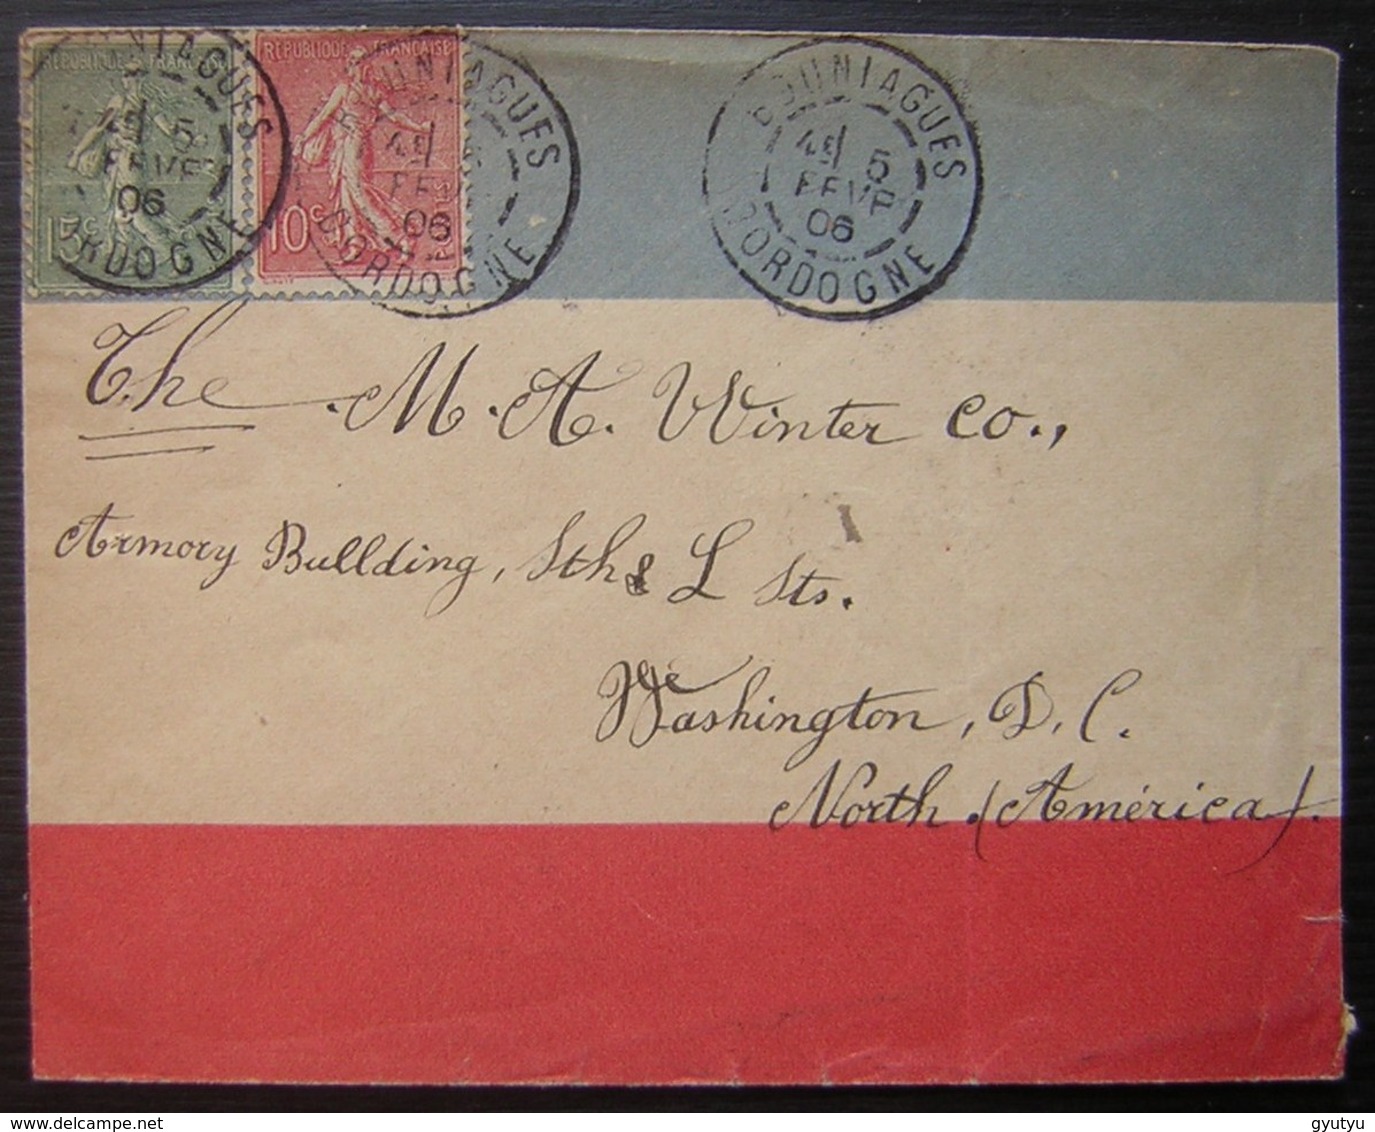 RÉPUBLIQUE FRANÇAISE
15c
RÉPUBLIQUE FRANÇAISE
10c
BOUNIAGUES
5
FEVR
06
DORDOGNE
BOUNIAGUES
5
FEVR
06
DORDOGNE
BOUNIAGUES
5
FEVR
06
DORDOGNE
The M. A. Winter Co.,
Armory Bullding, Sth & L Sts.
Washington, D. C.
North. (América).
gyutyu